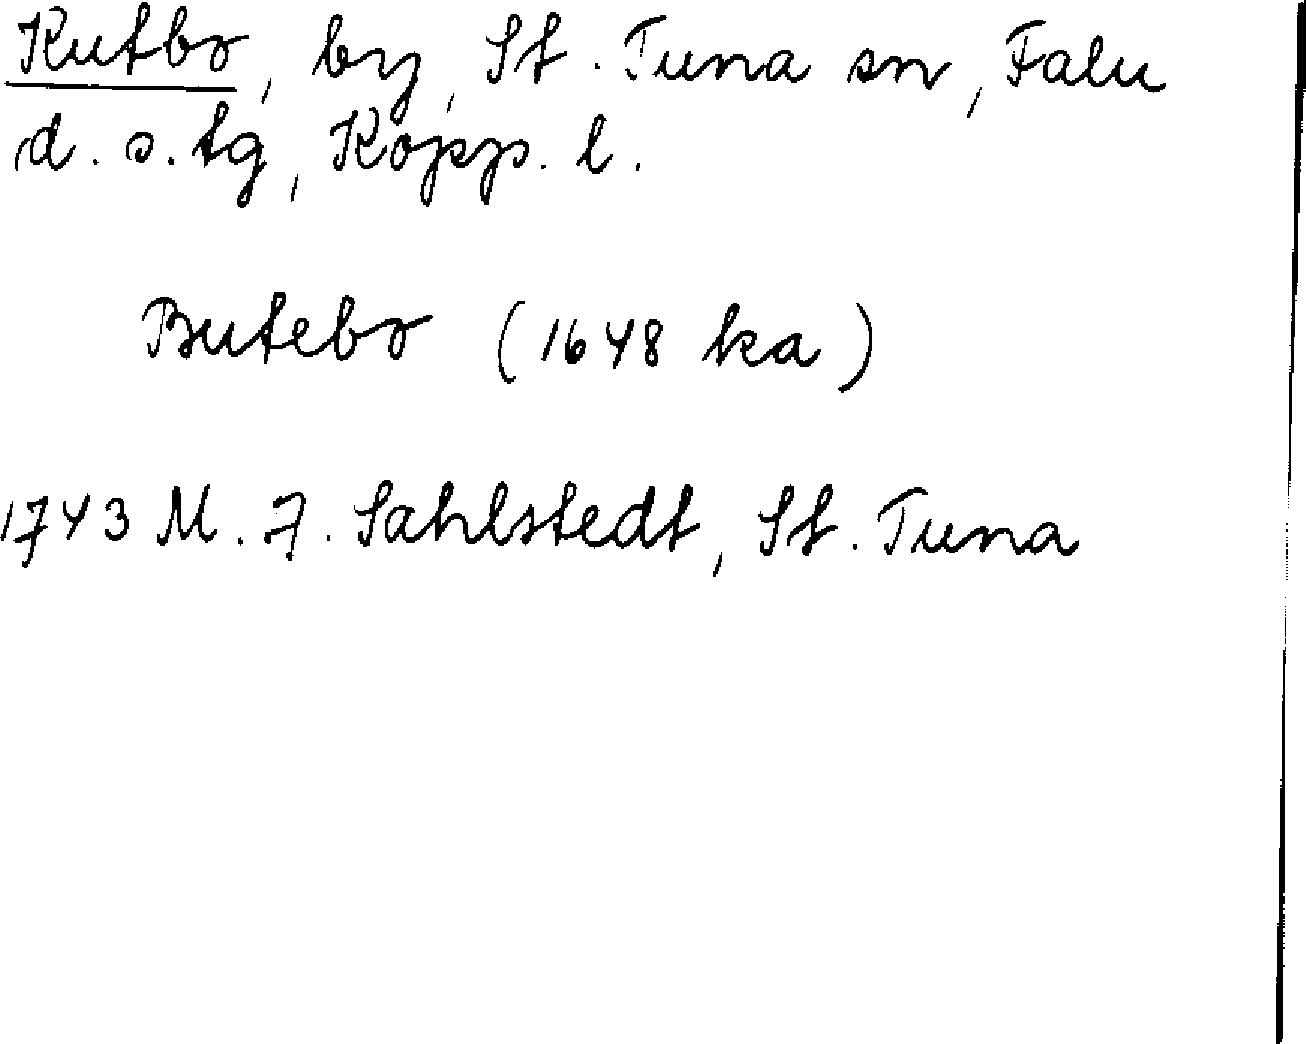 Kutbo, by, St. Tuna sn, Falu
d. s. tg, Kopp. l.
Butebo (1648 ka)
1743 M. F. Sahlstedt, St. Tuna